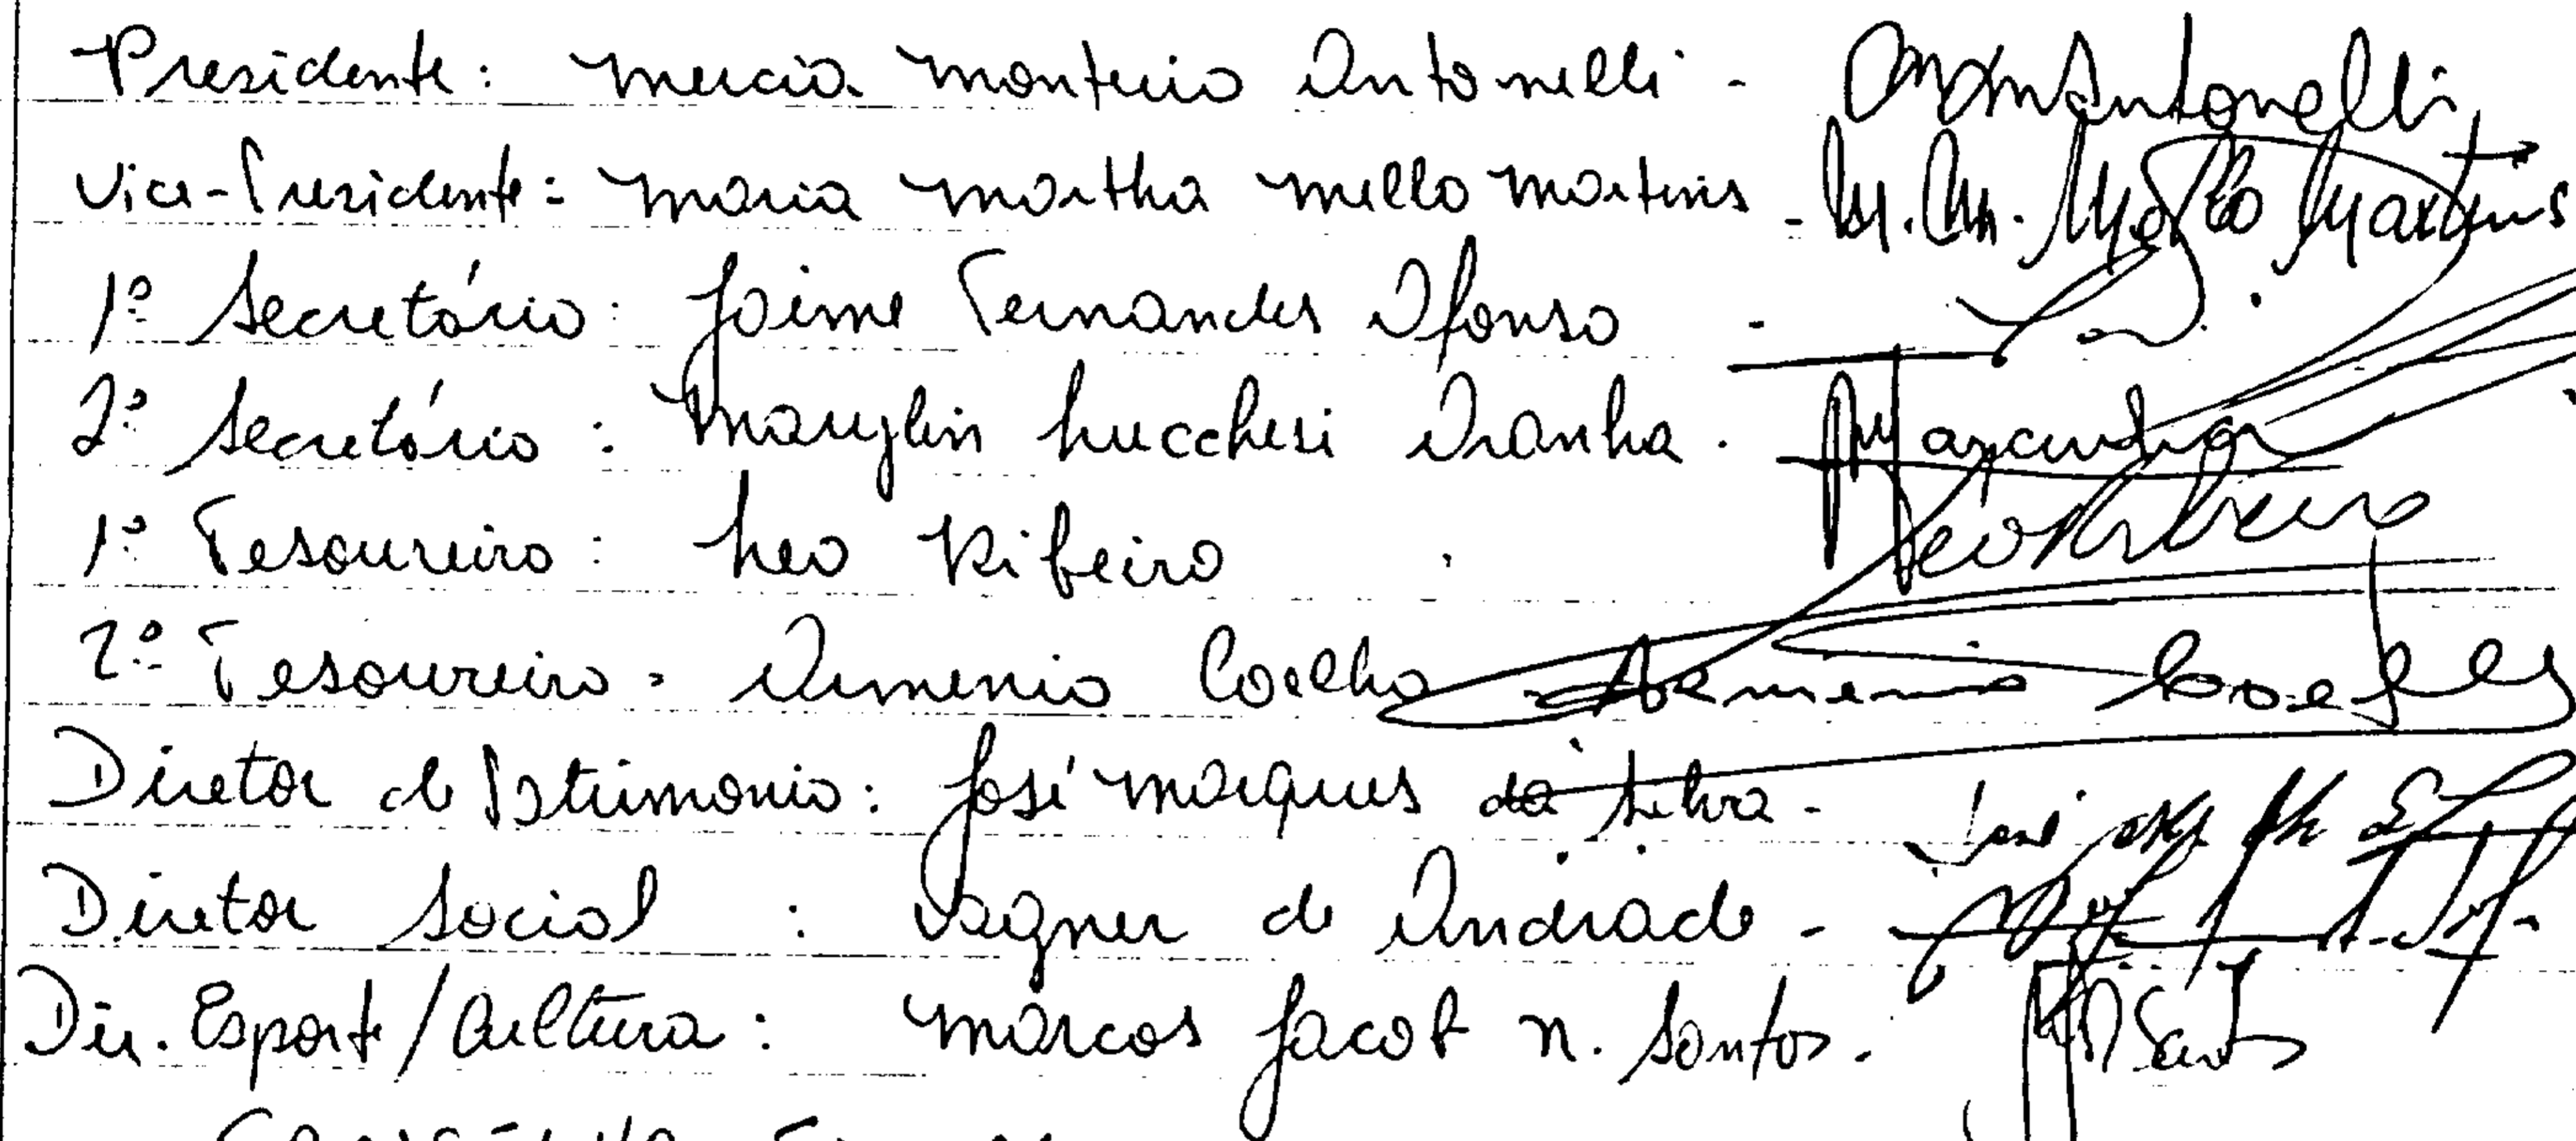 Presidente: Mercia Monteiro Antonelli - MMAntonelli
Vice-Presidente: Maria Martha Mello Martins - M. M. Mello Martins
1º Secretário: Jaime Fernandes Afonso -
2º Secretário: Marylin Lucchesi Aranha.
1º Tesoureiro: Leo Ribeiro . Leo Ribeiro
2º Tesoureiro. Armenio Coelho Armenio Coelho
Diretor de Patrimonio: José Marques da Silva - José
Diretor Social : Vagner de Andrade -
Dir. Esporte/Cultura: Marcos Jacob N. Santos. Santos